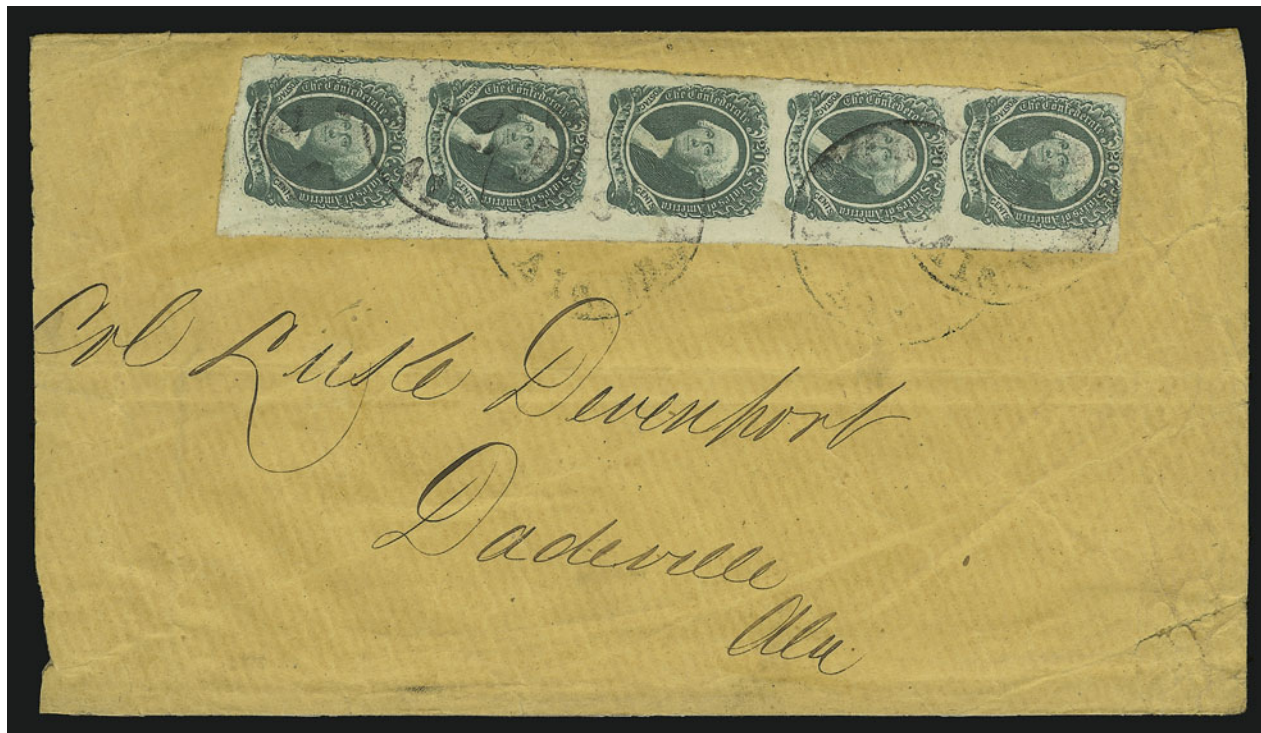 The Confederate States of America 20 C
The Confederate States of America 20 C
The Confederate States of America 20 C
The Confederate States of America 20 C
The Confederate States of America 20 C
Col Lusle Devenport
Dadeville
Ala